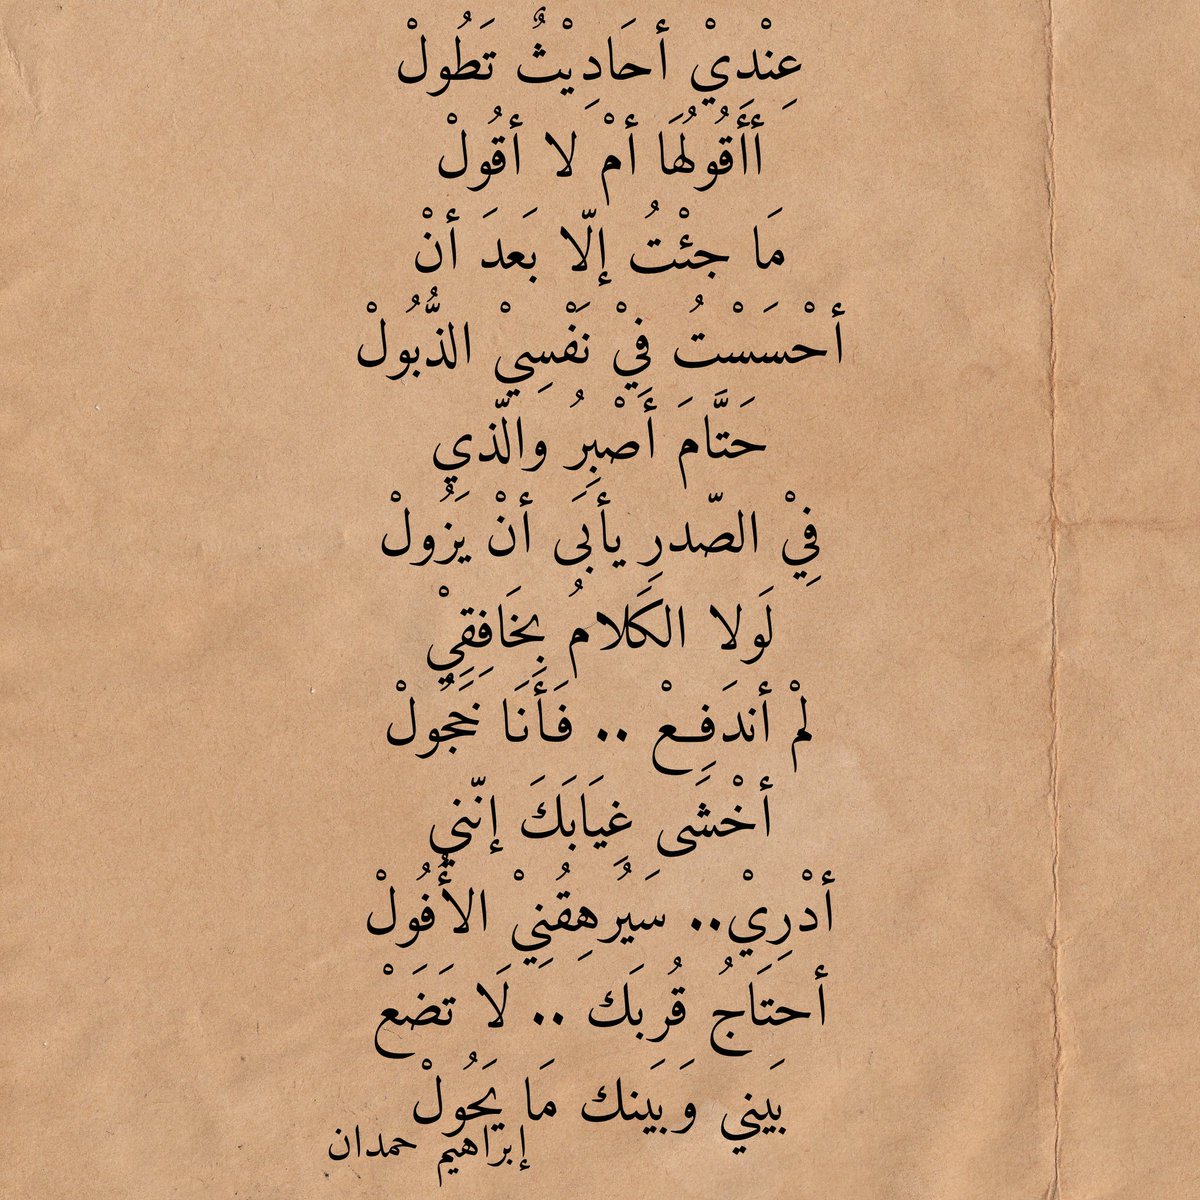 عِنْدِيْ أحَادِيْثٌ تَطُولْ
أأَقُولُهَا أمْ لا أقُولْ
مَا جئْتُ إلّا بَعدَ أنْ
أحْسَسْتُ فِيْ نَفْسِيْ الذُّبُولْ
حَتَّامَ أَصْبِرُ والّذي
فِيْ الصّدرِ يأبَى أنْ يَزُولْ
لَولا الكَلامُ بِخَافِقِيْ
لمْ أندَفِـعْ .. فَأَنَا خَجُولْ
أخْشَى غِيَابَكَ إنّني
أدْرِيْ.. سَيُرهِقُنِيْ الأُفُولْ
أحتَاجُ قُربَك .. لَا تَضَعْ
بَيني وَبَينك مَا يَحُولْ
إبراهيم حمدان